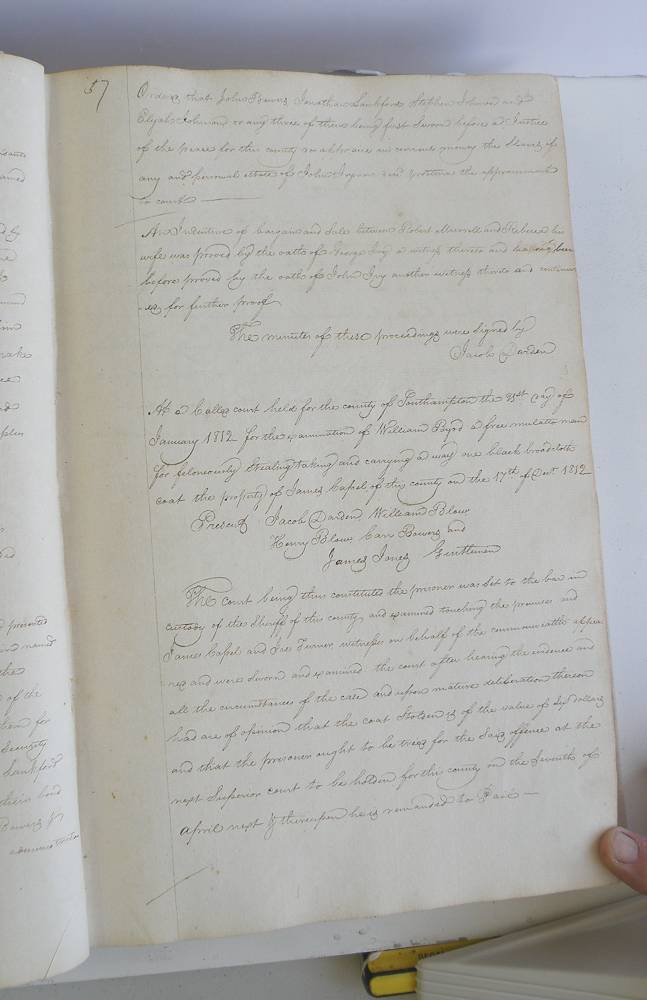 57
Orders that John Bowers Jonathan Lankford Stephen Johnson and
Elijah Johnson or any three of them being first Sworn before a Justice
of the peace for this county do appraise in current money the Slaves if
any and personal estate of John dec'd & return the appraisement
to court
An Indenture of bargain and sale between Robert Murrell and Rebecca his
wife was proved by the oath of George Ivy a witness thereto and having been
before proved by the oath of John Ivy another witness thereto and continu
-ed for further proof
The minutes of these proceedings were signed by
Jacob Darden
At a Called court held for the county of Southampton the 21st day of
January 1812 for the examination of William a free mulatto man
for feloneously Stealing taking and carrying away one black broadcloth
coat the property of James Capel of this county on the 17th of 1812
Present Jacob Darden William Blow
Henry Blow Carr Bowers and
James Jones Gentlemen
The court being thus constituted the prisoner was set to the bar in
custody of the Sheriff of this county and examined touching the premises and
James Capel and Turner witnesses on behalf of the commonwealth appea
red and were Sworn and examined the court after hearing the evidence and
all the circumstances of the case and upon mature deliberation thereon
had are of opinion that the coat Stolen is of the value of Six dollars
and that the prisoner ought to be tried for the said offence at the
next Superior court to be holden for this county on the Seventh of
April next & thereupon he is remanded to Jail
presented
and named
the
of the
for
Security
Lankford
their bond
Bowers